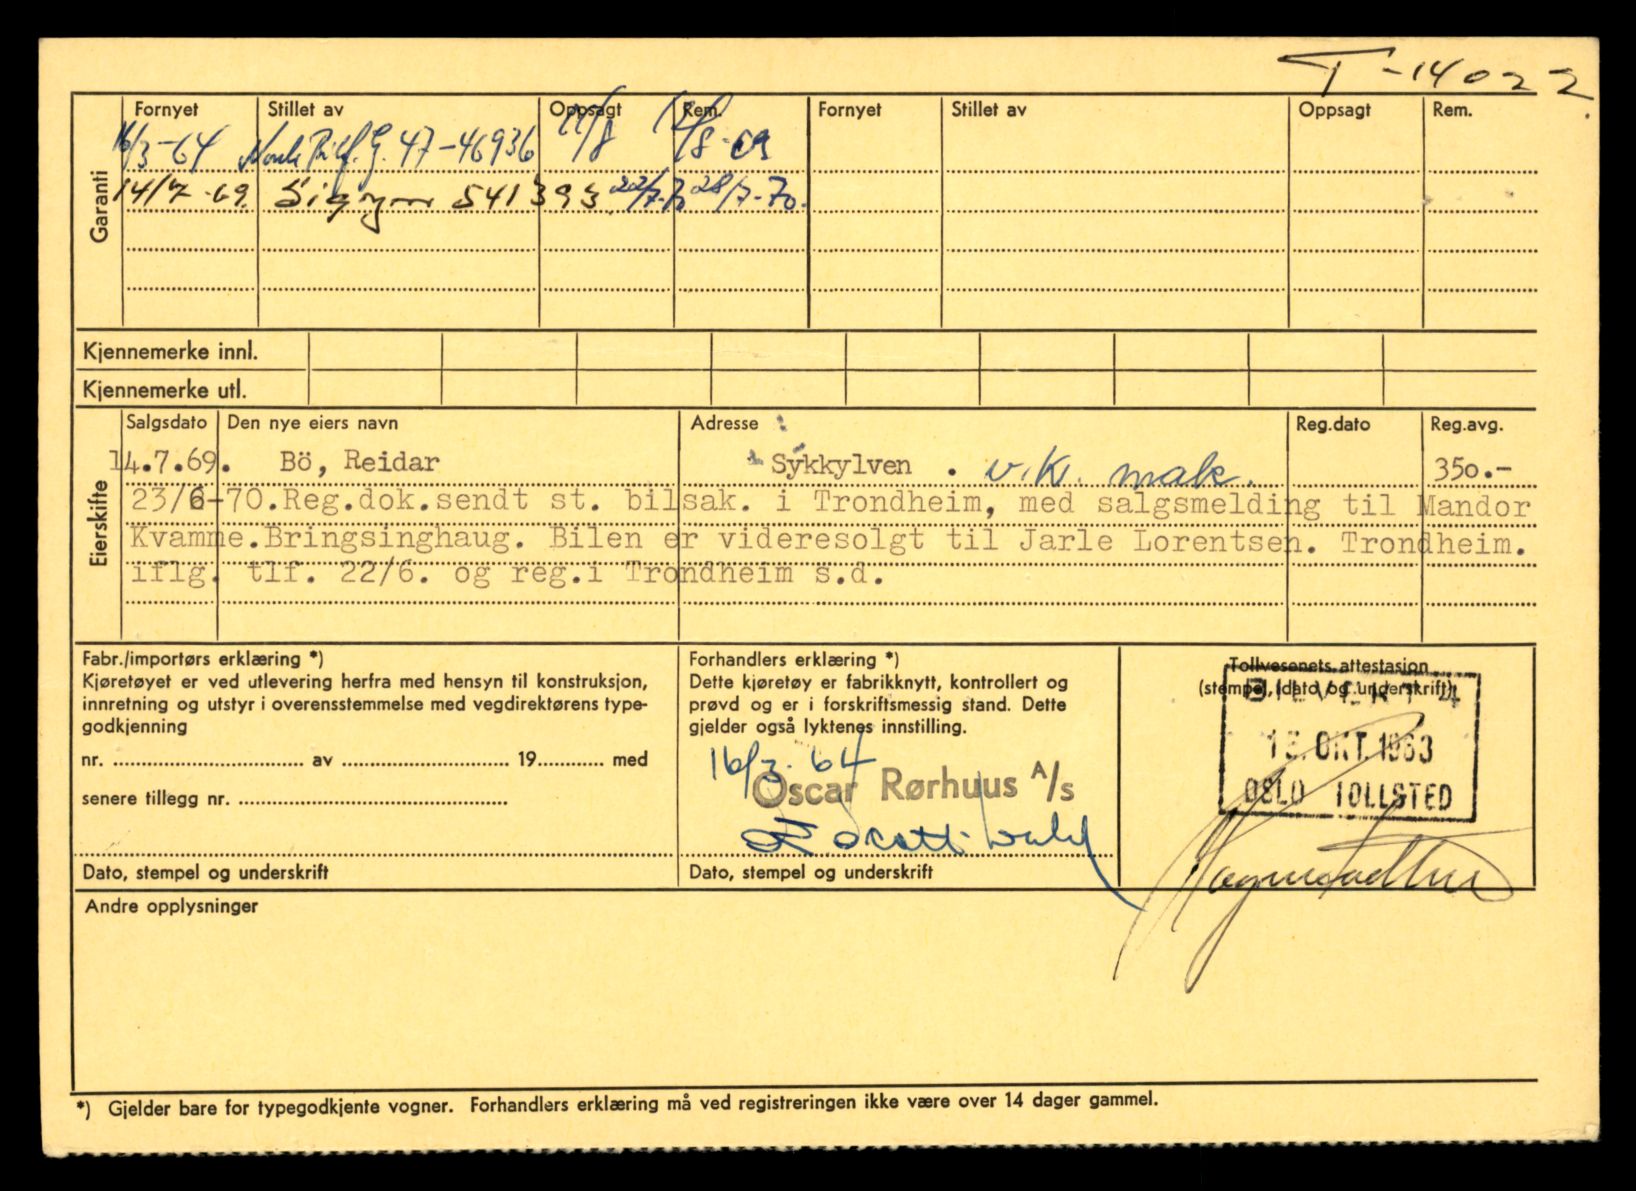 T-14022
Garanti
Fornyet Stillet av Oppsagt Rem. Fornyet Stillet av Oppsagt Rem.
16/3-64 47-46936 11/8 12/8-69
14/7-69. Sigyn 541393 22/7-70 28/7-70.
Kjennemerke innl.
Kjennemerke utl.
Eierskifte
Salgsdato Den nye eiers navn Adresse Reg.dato Reg.avg.
14.7.69. Bö, Reidar Sykkylven . v.k. mak. 350.-
23/6-70.Reg.dok.sendt st. bilsak. i Trondheim, med salgsmelding til Mandor
Kvamme.Bringsinghaug. Bilen er videresolgt til Jarle Lorentsen. Trondheim.
iflg. tlf. 22/6. og reg.i Trondheim s.d.
Fabr./importørs erklæring *)
Kjøretøyet er ved utlevering herfra med hensyn til konstruksjon,
innretning og utstyr i overensstemmelse med vegdirektørens type-
godkjenning
nr. av 19 med
senere tillegg nr.
Dato, stempel og underskrift
Forhandlers erklæring *)
Dette kjøretøy er fabrikknytt, kontrollert og
prøvd og er i forskriftsmessig stand. Dette
gjelder også lyktenes innstilling.
16/3. 64
Oscar Rørhuus A/s
Dato, stempel og underskrift
Tollvesenets attestasjon
(stempel, dato og underskrift)
OKT. 1963
OSLO TOLLSTED
Andre opplysninger
*) Gjelder bare for typegodkjente vogner. Forhandlers erklæring må ved registreringen ikke være over 14 dager gammel.